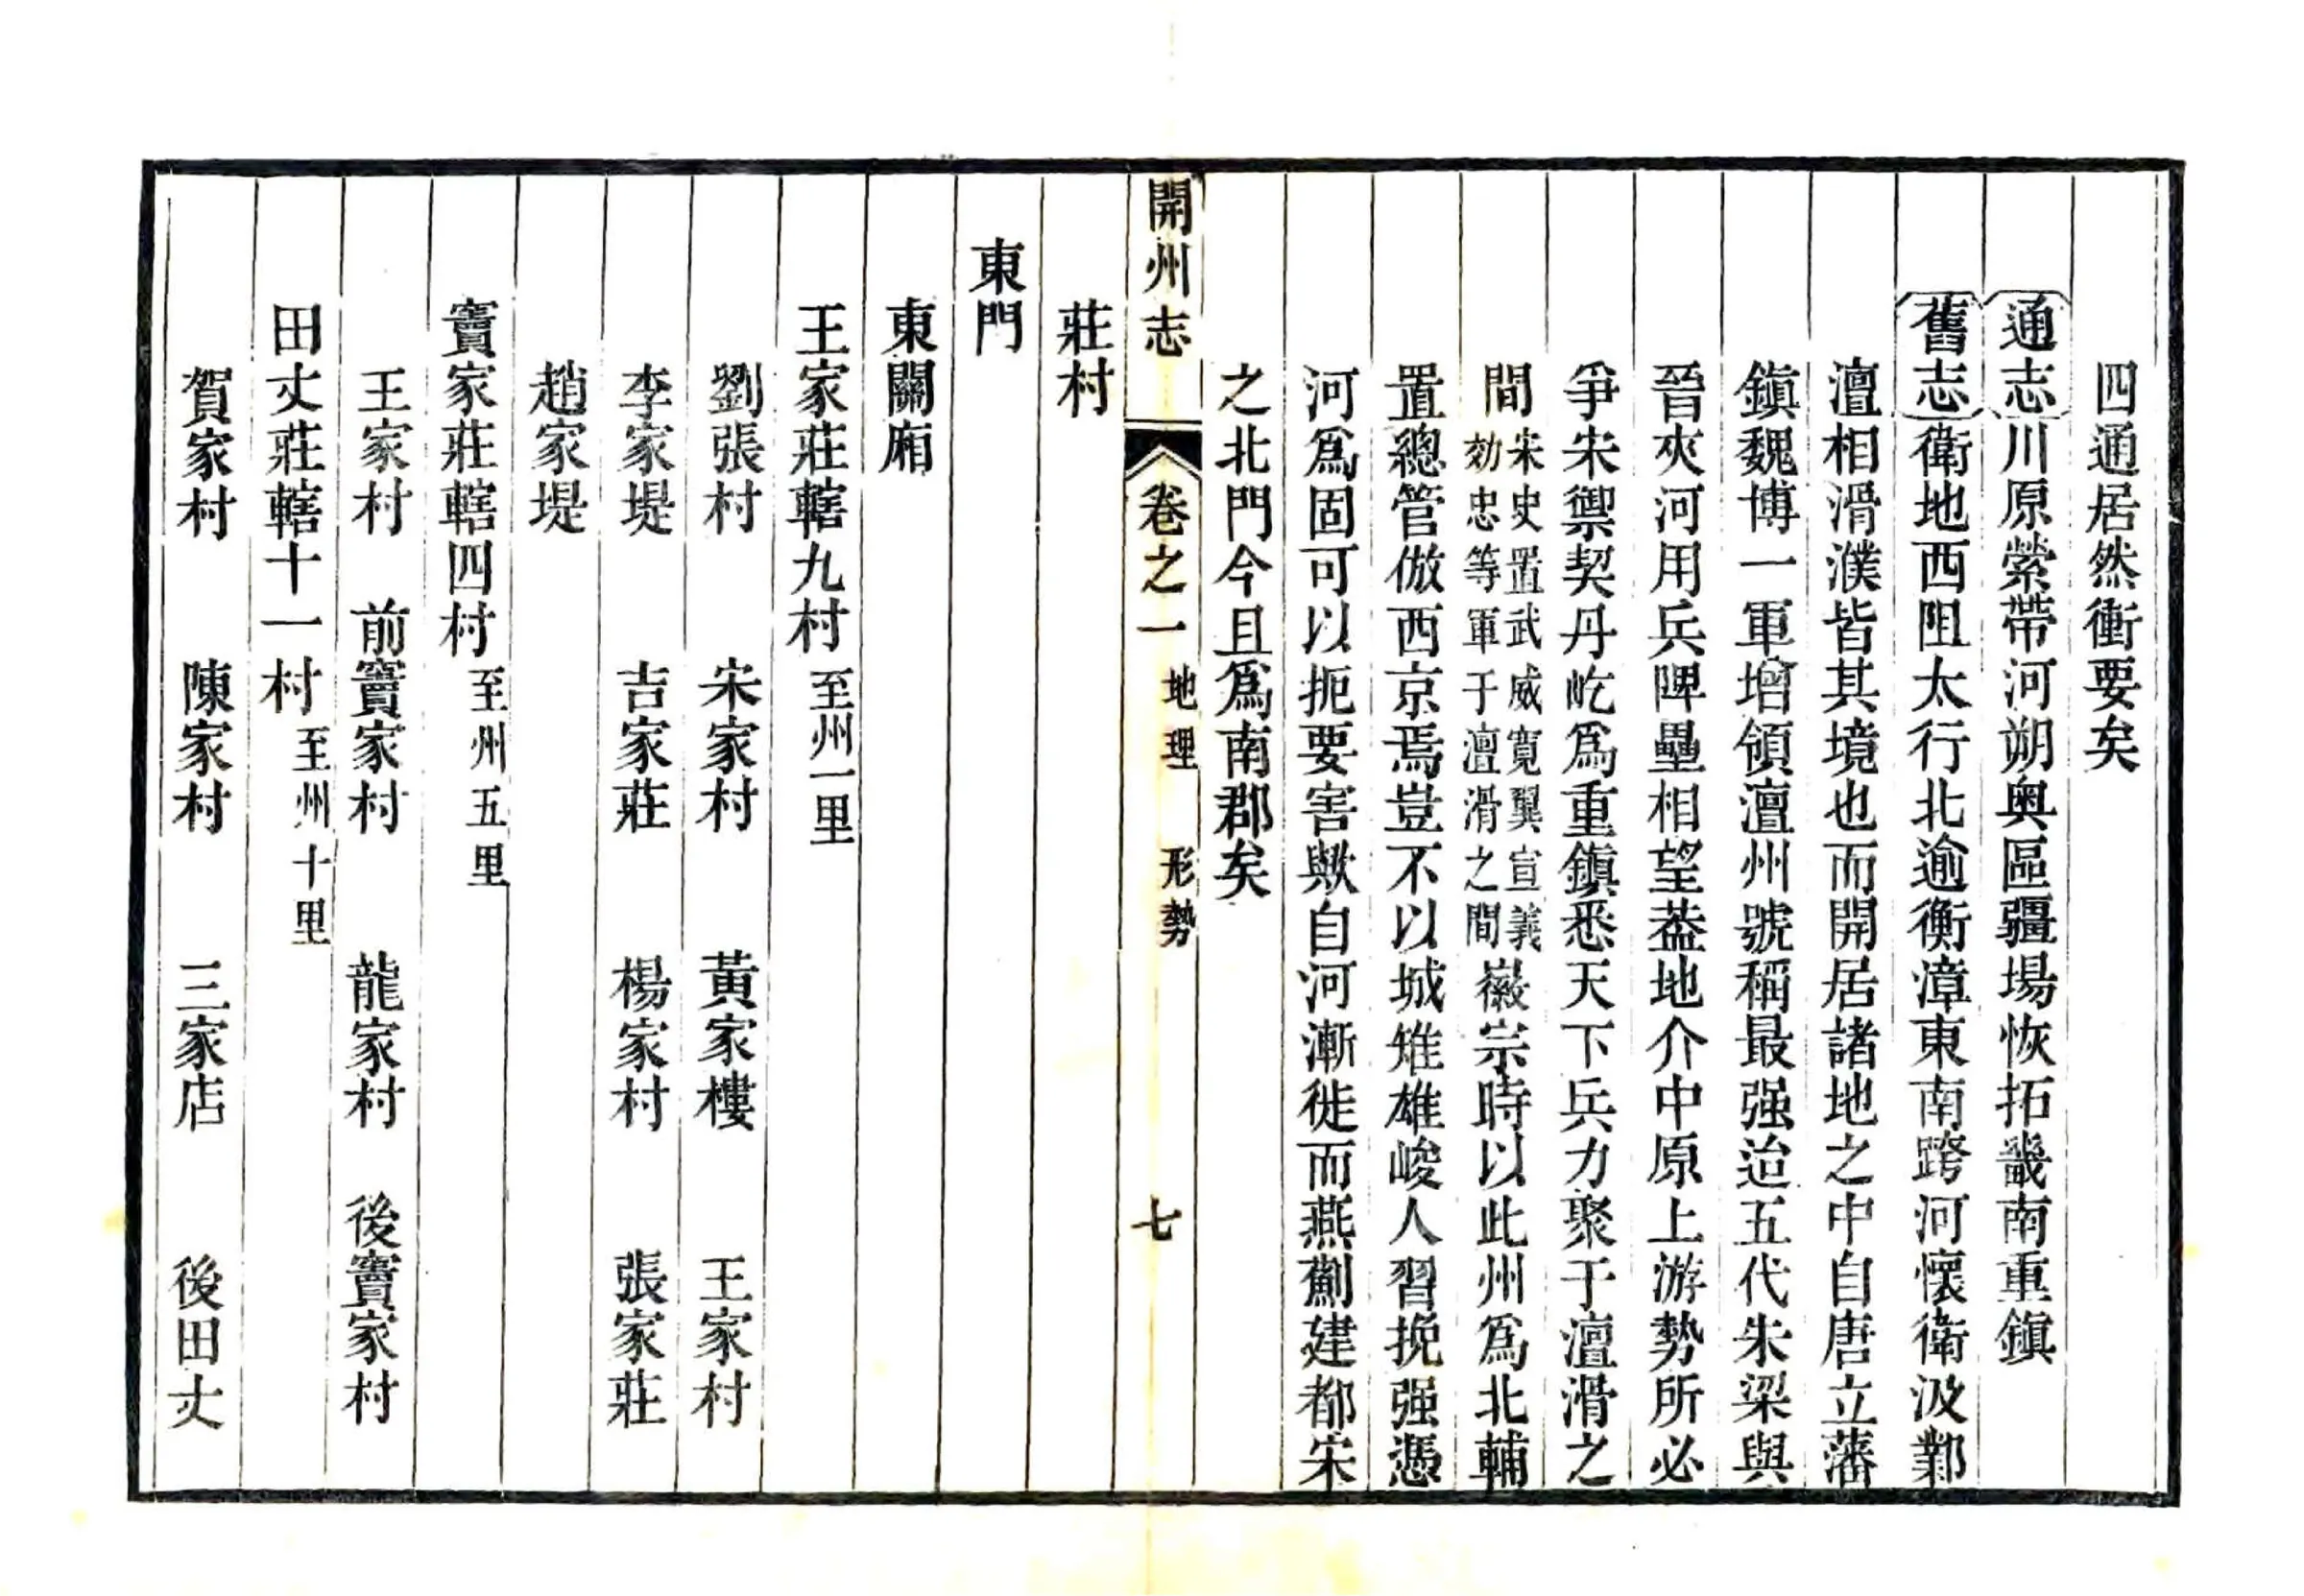 四通居然衝要矣
通志川原縈帶河朔奧區疆場恢拓畿南重鎮
舊志衛地西阻太行北逾衡漳東南跨河懷衛汲鄴
澶相滑濮皆其境也而開居諸地之中自唐立藩
鎮魏博一軍增領澶州號稱最强迨五代朱梁與
晉夾河用兵陴壘相望葢地介中原上游勢所必
爭宋禦契丹屹爲重鎮悉天下兵力聚于澶滑之
間宋史置武威寬翼宣義効忠等軍于澶滑之間徽宗時以此州爲北輔
置總管倣西京焉豈不以城雉雄峻人習挽强憑
河爲固可以扼要害歟自河漸徙而燕薊建都宋
之北門今且爲南郡矣
開州志 卷之一 地理 形勢 七
莊村
東門
東關廂
王家莊轄九村至州一里
劉張村 宋家村 黃家樓 王家村
李家堤 吉家莊 楊家村 張家莊
趙家堤
竇家莊轄四村至州五里
王家村 前竇家村 龍家村 後竇家村
田丈莊轄十一村至州十里
賀家村 陳家村 三家店 後田丈